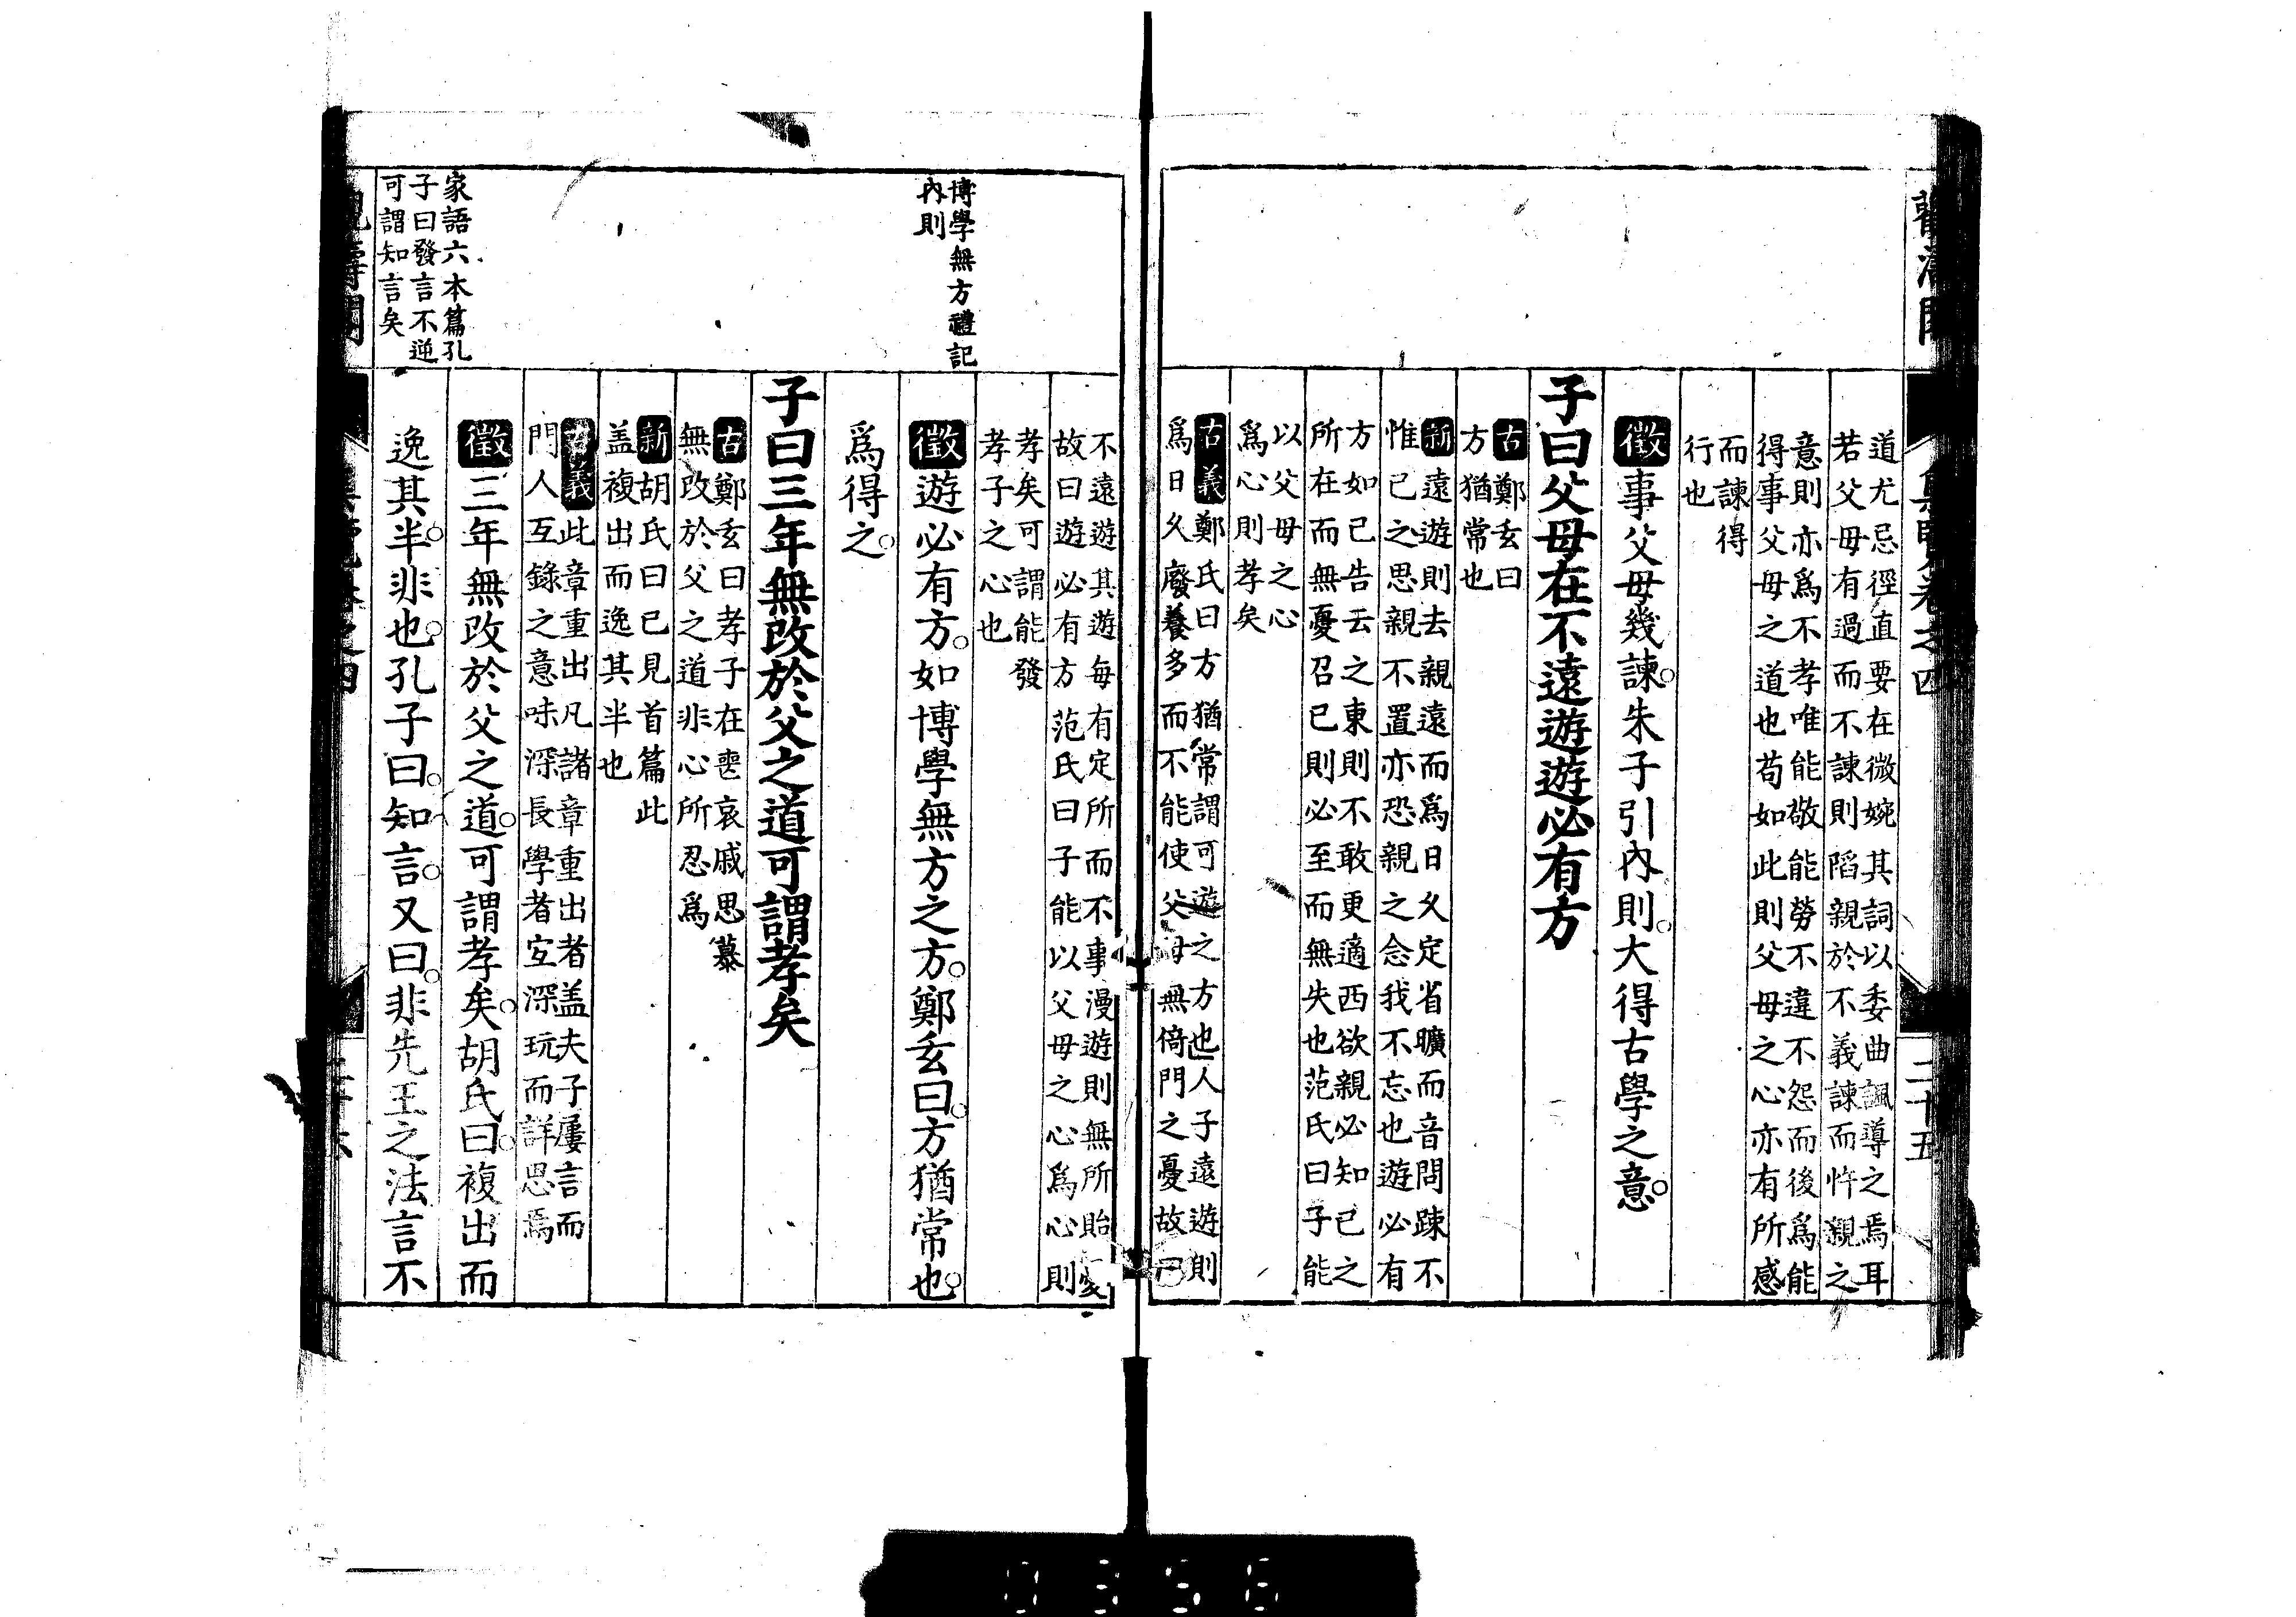 道尤忌徑直要在微婉其詞以委曲諷導之焉耳
若父母有過而不諫則陷親於不義諫而忤親之
意則亦爲不孝唯能敬能勞不違不怨而後爲能
得事父母之道也苟如此則父母之心亦有所感
而諫得
行也
徵事父母幾諫朱子引內則大得古學之意
子曰父母在不遠遊遊必有方
古鄭玄曰
方猶常也
新遠遊則去親遠而爲日久定省曠而音問踈不
惟己之思親不置亦恐親之念我不忘也遊必有
方如己告云之東則不敢更適西欲親必知己之
所在而無憂召己則必至而無失也范氏曰子能
以父母之心
爲心則孝矣
古義鄭氏曰方猶常謂可遊之方也人子遠遊則
爲日久廢養多而不能使父母無倚門之憂故曰
二十五
博學無方禮記
內則
不遠遊其遊每有定所而不事漫遊則無所貽憂
故曰遊必有方范氏曰子能以父母之心爲心則
孝矣可謂能發
孝子之心也
徵遊必有方如博學無方之方鄭玄曰方猶常也
爲得之
子曰三年無改於父之道可謂孝矣
古鄭玄曰孝子在喪哀戚思慕
無改於父之道非心所忍爲
新胡氏曰已見首篇此
盖複出而逸其半也
古義此章重出凡諸章重出者盖夫子屢言而
門人互錄之意味深長學者宐深玩而詳思焉
徵三年無改於父之道可謂孝矣胡氏曰複出而
逸其半非也孔子曰知言又曰非先王之法言不
家語六本篇孔
子曰發言不逆
可謂知言矣